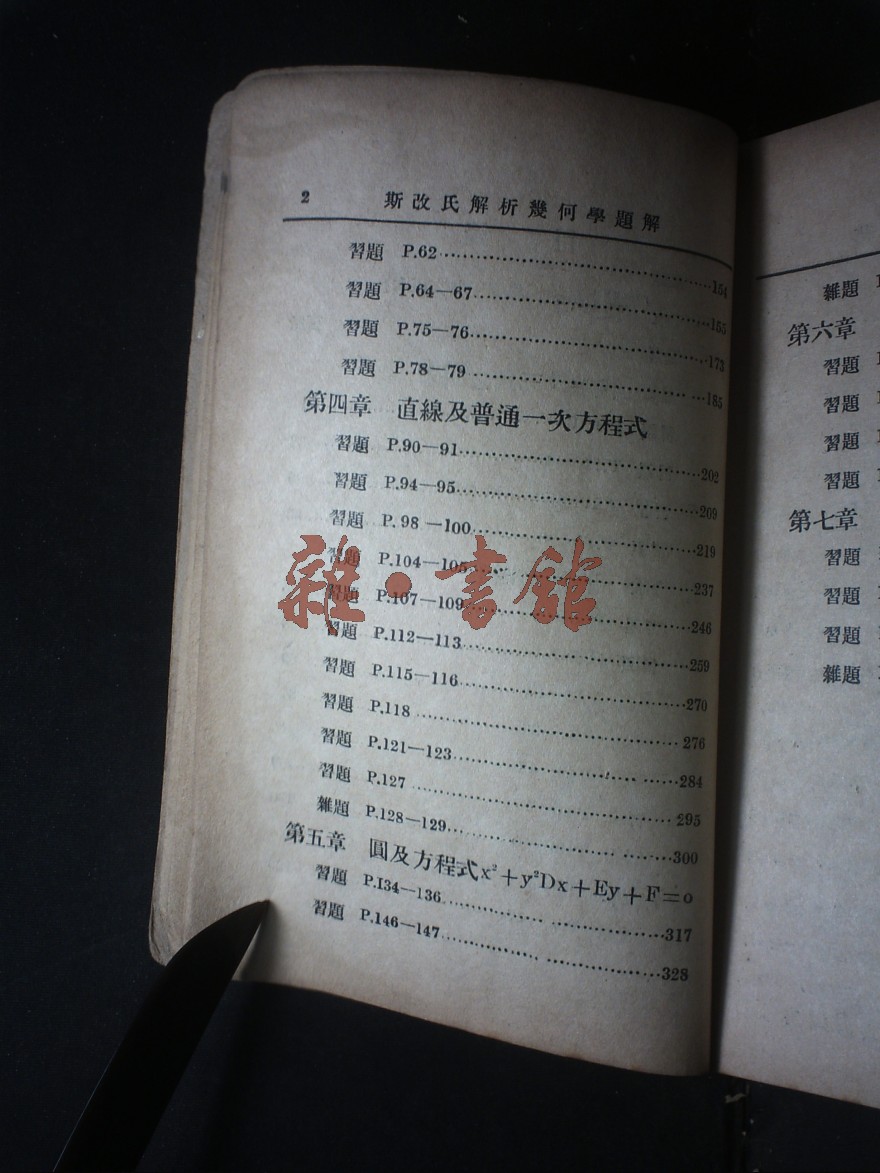 2 斯改氏解析幾何學題解
習題 P.62 154
習題 P.64—67 155
習題 P.75—76 173
習題 P.78—79 185
第四章 直線及普通一次方程式
習題 P.90—91 202
習題 P.94—95 209
習題 P. 98—100 219
習題 P.104—105 237
習題 P.107—109 246
習題 P.112—113 259
習題 P.115—116 270
習題 P.118 276
習題 P.121—123 284
習題 P.127 295
雜題 P.128—129 300
第五章 圓及方程式x²+y²Dx+Ey+F=o
習題 P.134—136 317
習題 P.146—147 328
雜·書館
雜題
第六章
習題
習題
習題
習題
第七章
習題
習題
習題
雜題